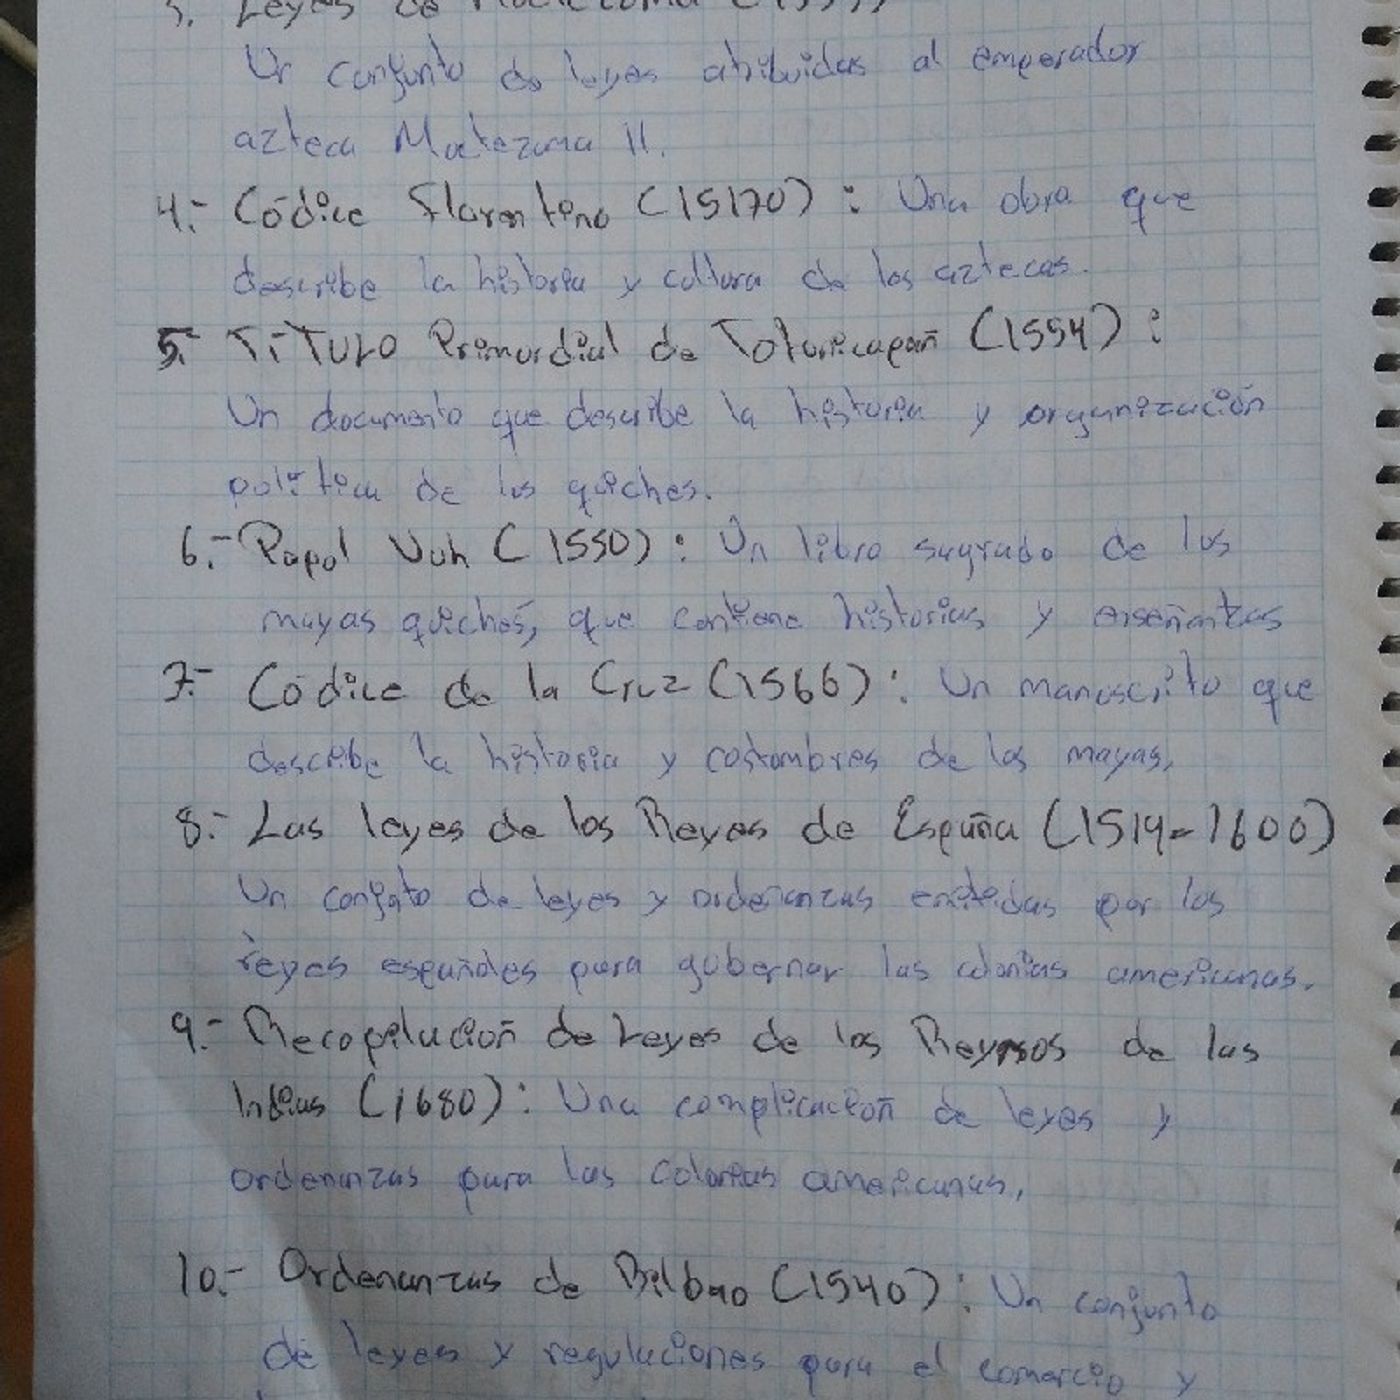 3. Leyes de Moctezuma (1535)
Un conjunto de leyes atribuidas al emperador
azteca Moctezuma II.
4.- Códice Florentino (15170): Una obra que
describe la historia y cultura de los aztecas.
5.- TÍTULO Primordial de Totonicapañ (1554):
Un documento que describe la historia y organización
política de los quiches.
6.- Popol Vuh (1550): Un libro sagrado de los
mayas quichés, que contiene historias y enseñantzas
7.- Códice de la Cruz (1566): Un manuscrito que
describe la historia y costombres de los mayas,
8.- Las leyes de los Reyes de España (1519-1600)
Un conjato de leyes y ordenanzas emitidas por los
reyes españoles para gobernar las colonias americanas.
9.- Recopilacioñ de Leyes de los Reynsos de las
Indias (1680): Una complicacioñ de leyes y
ordenanzas para las colonias americanas,
10.- Ordenanzas de Bilbao (1540): Un conjunto
de leyes y regulaciones para el comercio y